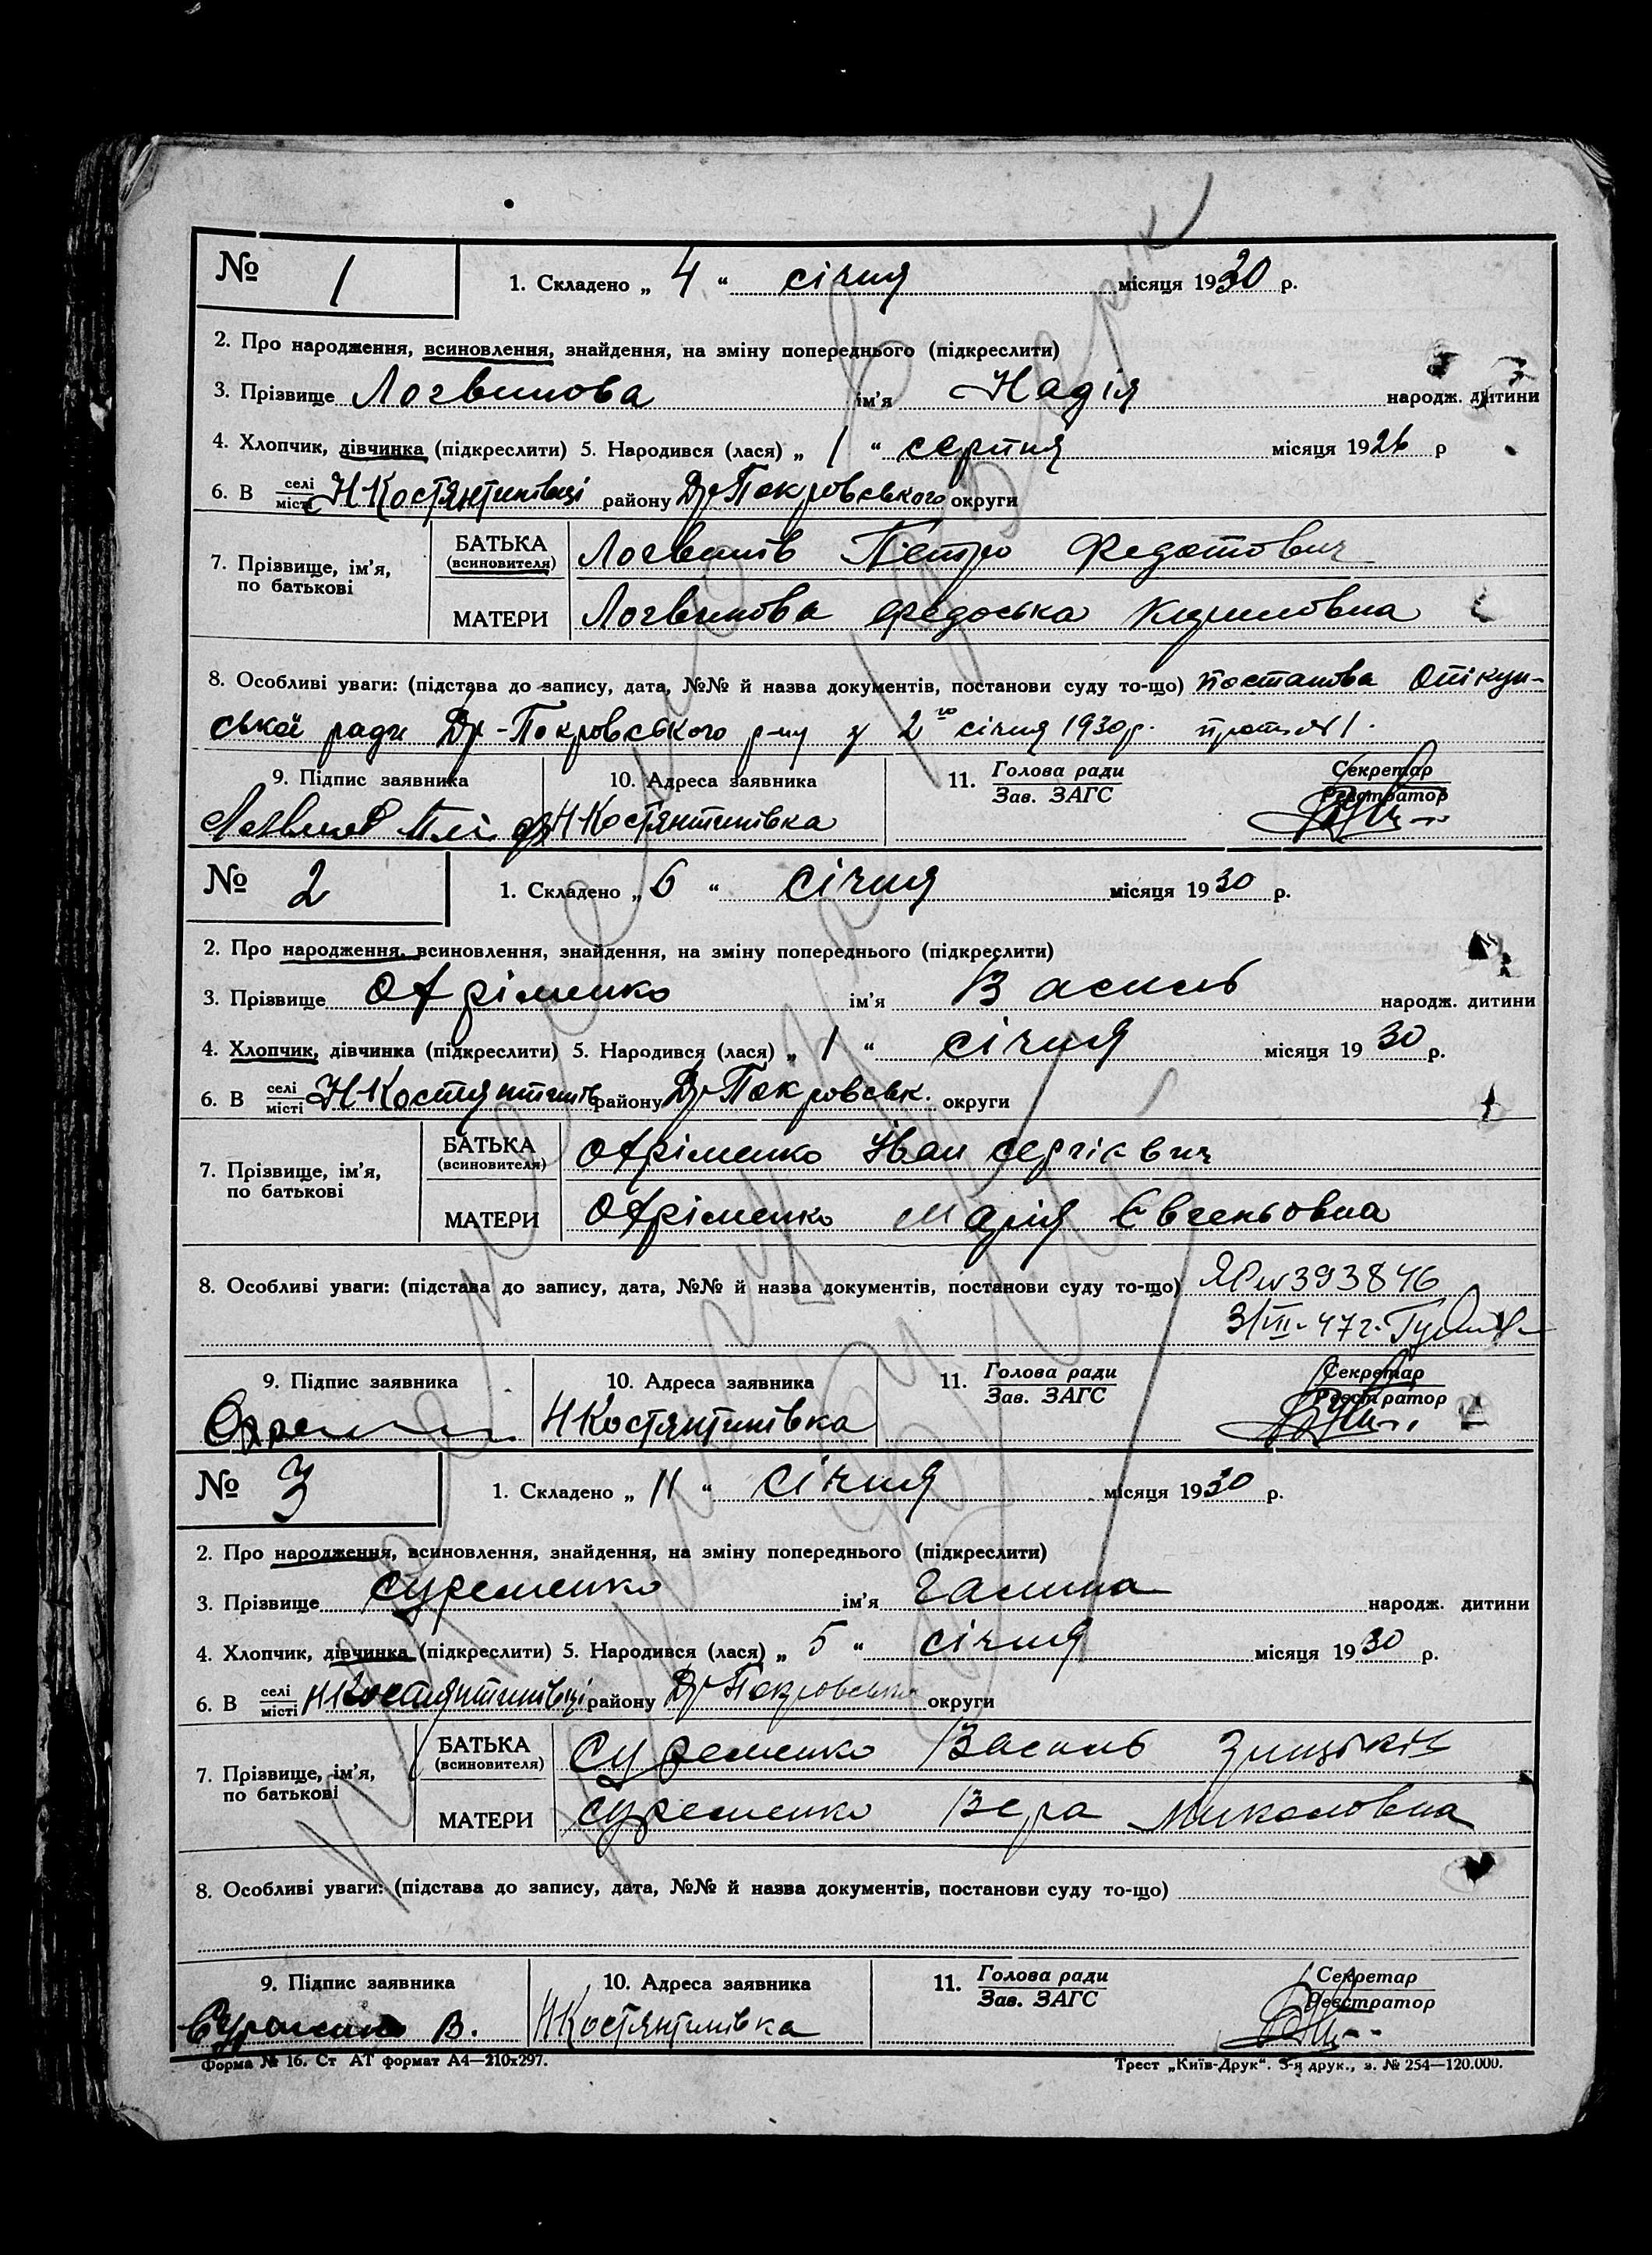 № 1 1. Складено „ 4 “ січня місяця 1930 р.
2. Про народження, всиновлення, знайдення, на зміну попереднього (підкреслити)
3. Прізвище Логвинова ім'я Надія народж. дитини
4. Хлопчик, дівчинка (підкреслити) 5. Народився (лася) „ 1 “ серпня місяця 1926 р
6. В селі/місті Н Костянтинівці району Др Покровського округи
7. Прізвище, ім'я, по батькові
БАТЬКА (всиновителя) Логвинів Петро Федотович
МАТЕРИ Логвинова Федоська Кириловна
8. Особливі уваги: (підстава до запису, дата, №№ й назва документів, постанови суду то-що) постанова Опікун-
ської ради Др-Покровського р-ну у 2го січня 1930р. прот. №1.
9. Підпис заявника 10. Адреса заявника 11. Голова ради/Зав. ЗАГС Секретар/Реєстратор
Н Костянтинівка
№ 2 1. Складено „ 6 “ січня місяця 1930 р.
2. Про народження, всиновлення, знайдення, на зміну попереднього (підкреслити)
3. Прізвище Офріменко ім'я Василь народж. дитини
4. Хлопчик, дівчинка (підкреслити) 5. Народився (лася) „ 1 “ січня місяця 1930 р.
6. В селі/місті Н Костянтинів району Др Покровськ. округи
7. Прізвище, ім'я, по батькові
БАТЬКА (всиновителя) Офріменко Іван Сергієвич
МАТЕРИ Офріменко Марія Євгеньовна
8. Особливі уваги: (підстава до запису, дата, №№ й назва документів, постанови суду то-що) ЯР № 393846
3/VII-47 г.
9. Підпис заявника 10. Адреса заявника 11. Голова ради/Зав. ЗАГС Секретар/Реєстратор
Н Костянтинівка
№ 3 1. Складено „ 11 “ січня місяця 1930 р.
2. Про народження, всиновлення, знайдення, на зміну попереднього (підкреслити)
3. Прізвище Суременко ім'я Галина народж. дитини
4. Хлопчик, дівчинка (підкреслити) 5. Народився (лася) „ 5 “ січня місяця 1930 р.
6. В селі/місті Н Костянтинівці району Др Покровськ округи
7. Прізвище, ім'я, по батькові
БАТЬКА (всиновителя) Суременко Василь
МАТЕРИ Суременко Вера Миколовна
8. Особливі уваги: (підстава до запису, дата, №№ й назва документів, постанови суду то-що)
9. Підпис заявника 10. Адреса заявника 11. Голова ради/Зав. ЗАГС Секретар/Реєстратор
В. Н Костянтинівка
Форма № 16. Ст АТ формат А4—210х297. Трест „Київ-Друк“. 5-я друк., з. № 254—120.000.